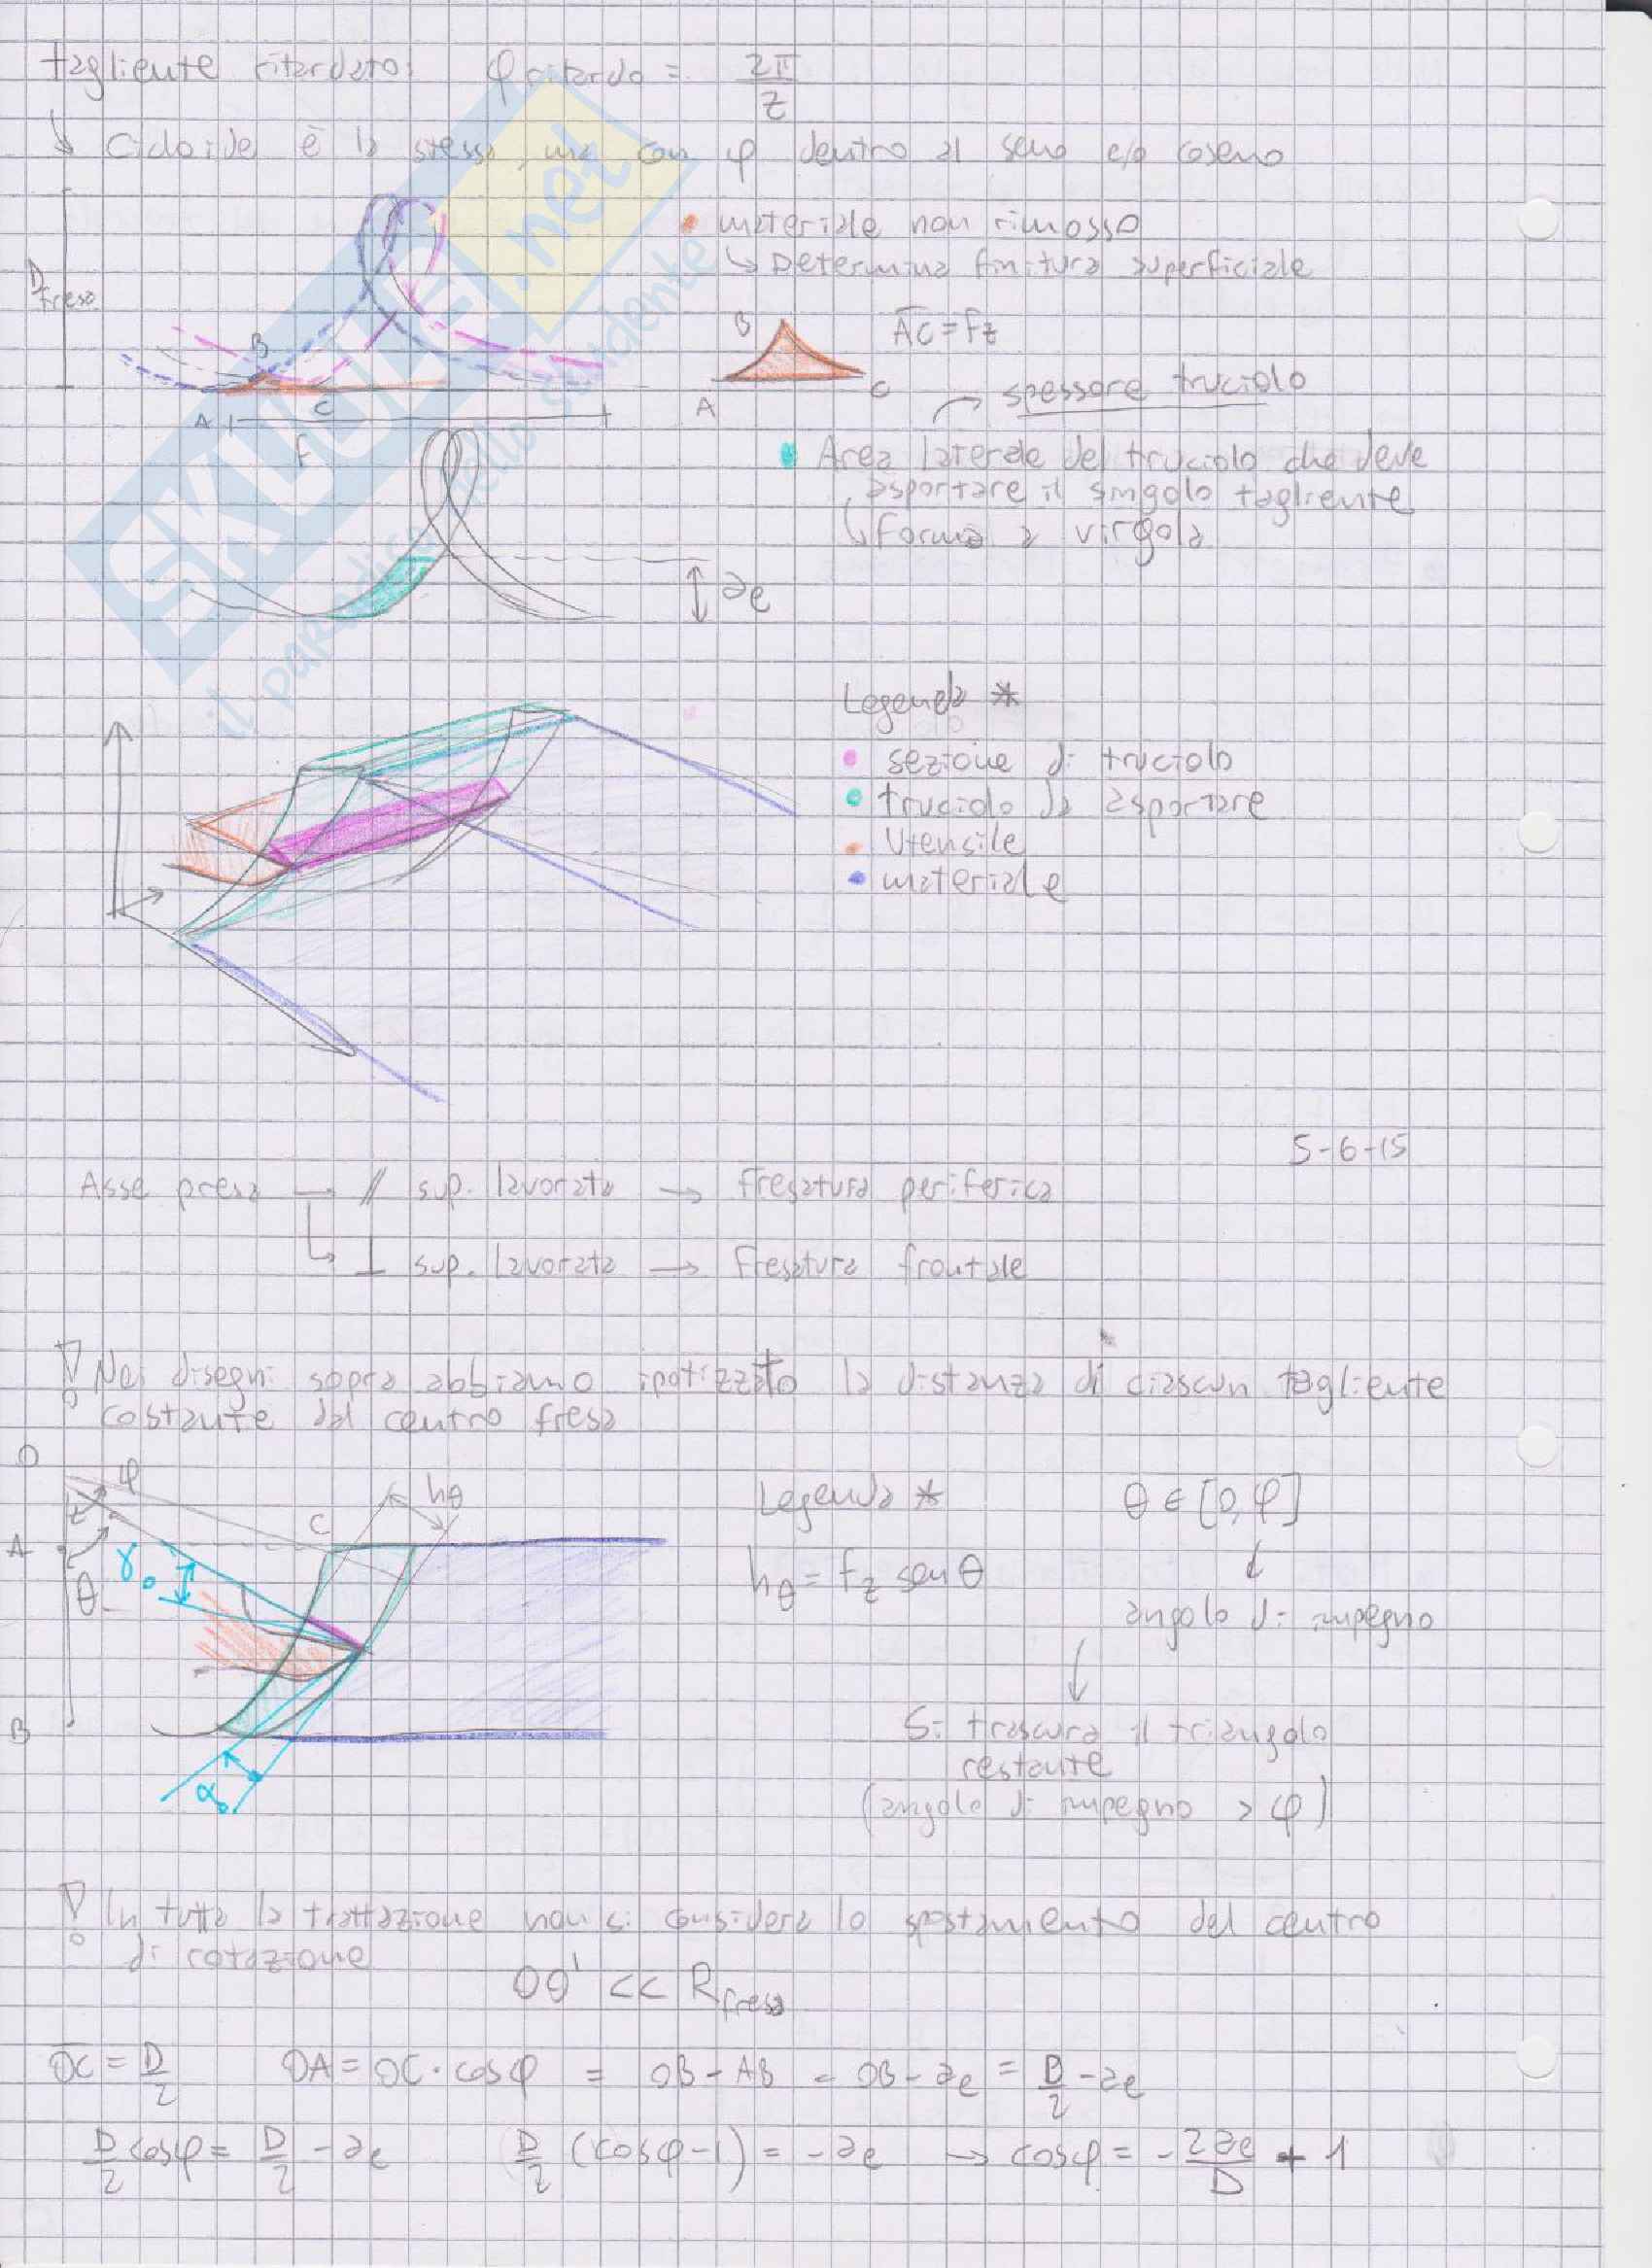 tagliente ritardato: φ ritardo = 2π/z
↳ Cicloide è la stessa, ma con φ dentro al seno e/o coseno
• materiale non rimosso
↳ Determina finitura superficiale
D fresa
B
A
C
f
B
A
C
AC = fz
→ spessore truciolo
• Area laterale del truciolo che deve
asportare il singolo tagliente
↳ forma a virgola
ae
Legenda *
• sezione di truciolo
• truciolo da asportare
• Utensile
• materiale
5-6-15
Asse presa → // sup. lavorata → Fresatura periferica
↳ ⊥ sup. lavorata → Fresatura frontale
Nei disegni sopra abbiamo ipotizzato la distanza di ciascun tagliente
costante dal centro fresa
O
φ
hθ
C
A
γo
θ
B
αo
Legenda *
θ ∈ [0,φ]
hθ = fz sen θ
↓
angolo di impegno
↓
Si trascura il triangolo
restante
(angolo di impegno > φ)
In tutta la trattazione non si considera lo spostamento del centro
di rotazione
OO' << R fresa
OC = D/2 OA = OC · cosφ = OB - AB = OB - ae = D/2 - ae
D/2 cosφ = D/2 - ae D/2 (cosφ - 1) = - ae → cosφ = - 2ae/D + 1
SKUOLA.net
il paradiso dello studente